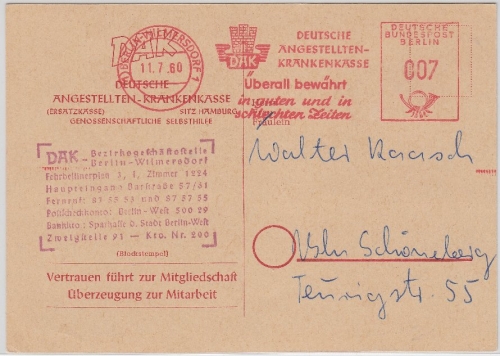 BERLIN-WILMERSDORF 1
11.7.60
DAK
DEUTSCHE
ANGESTELLTEN-KRANKENKASSE
(ERSATZKASSE) SITZ HAMBURG
GENOSSENSCHAFTLICHE SELBSTHILFE
DAK
DEUTSCHE
ANGESTELLTEN-
KRANKENKASSE
Überall bewährt
in guten und in
schlechten Zeiten
DEUTSCHE
BUNDESPOST
BERLIN
007
Fräulein
DAK - Bezirksgeschäftsstelle
Berlin-Wilmersdorf
Fehrbelliner Platz 3, I, Zimmer 1224
Haupteingang Barstraße 57/51
Fernruf: 87 57 55
Postscheckkonto: Berlin-West 500 29
Bankkto: Sparkasse d. Stadt Berlin-West
Zweigstelle 91 - Kto. Nr. 200
(Blockstempel)
Vertrauen führt zur Mitgliedschaft
Überzeugung zur Mitarbeit
Walter Raasch
Bln Schöneberg
55